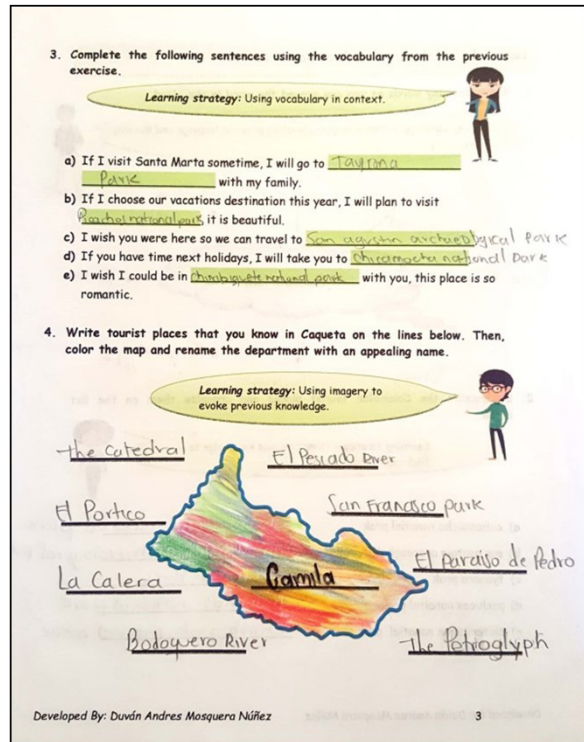 3. Complete the following sentences using the vocabulary from the previous
exercise.
Learning strategy: Using vocabulary in context.
a) If I visit Santa Marta sometime, I will go to Tayrona
Park with my family.
b) If I choose our vacations destination this year, I will plan to visit
national park, it is beautiful.
c) I wish you were here so we can travel to San agustin archaeological Park
d) If you have time next holidays, I will take you to chicamocha national Park
e) I wish I could be in chiribiquete national park with you, this place is so
romantic.
4. Write tourist places that you know in Caqueta on the lines below. Then,
color the map and rename the department with an appealing name.
Learning strategy: Using imagery to
evoke previous knowledge.
the Catedral
El Pescado River
El Portico
San Francisco Park
La Calera
Camila
El Paraiso de Pedro
Bodoquero River
The Petroglyph
Developed By: Duván Andres Mosquera Núñez 3